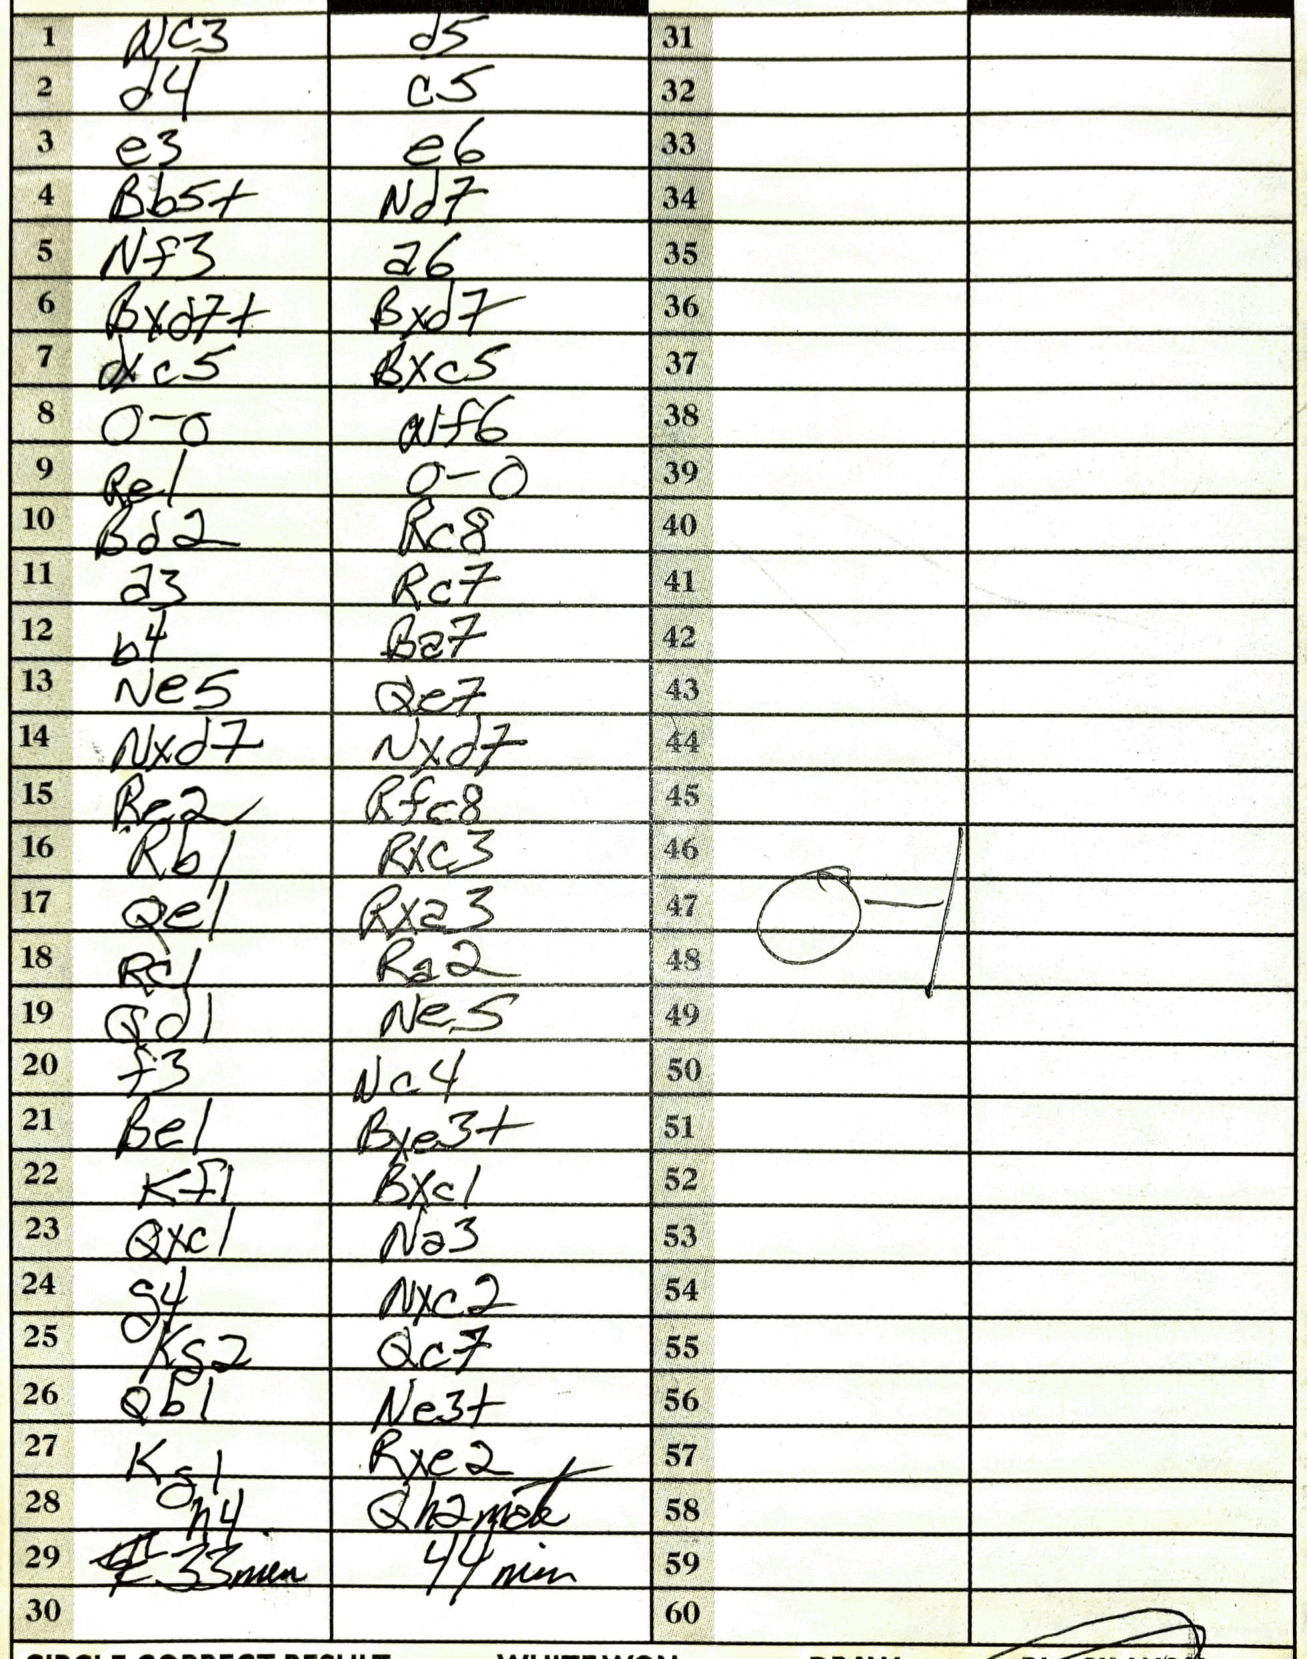 1 Nc3 d5 31
2 d4 c5 32
3 e3 e6 33
4 Bb5+ Nd7 34
5 Nf3 a6 35
6 Bxd7+ Bxd7 36
7 dxc5 Bxc5 37
8 0-0 Nf6 38
9 Re1 0-0 39
10 Bd2 Rc8 40
11 a3 Rc7 41
12 b4 Ba7 42
13 Ne5 Qe7 43
14 Nxd7 Nxd7 44
15 Re2 Rfc8 45
16 Rb1 Rxc3 46
17 Qe1 Rxa3 47 0-1
18 Rc1 Ra2 48
19 Qd1 Ne5 49
20 f3 Nc4 50
21 Be1 Bxe3+ 51
22 Kf1 Bxc1 52
23 Qxc1 Na3 53
24 g4 Nxc2 54
25 Kg2 Qc7 55
26 Qb1 Ne3+ 56
27 Kg1 Rxe2 57
28 h4 Qh2 mate 58
29 33 min 44 min 59
30 60
CIRCLE CORRECT RESULT WHITE WON DRAW